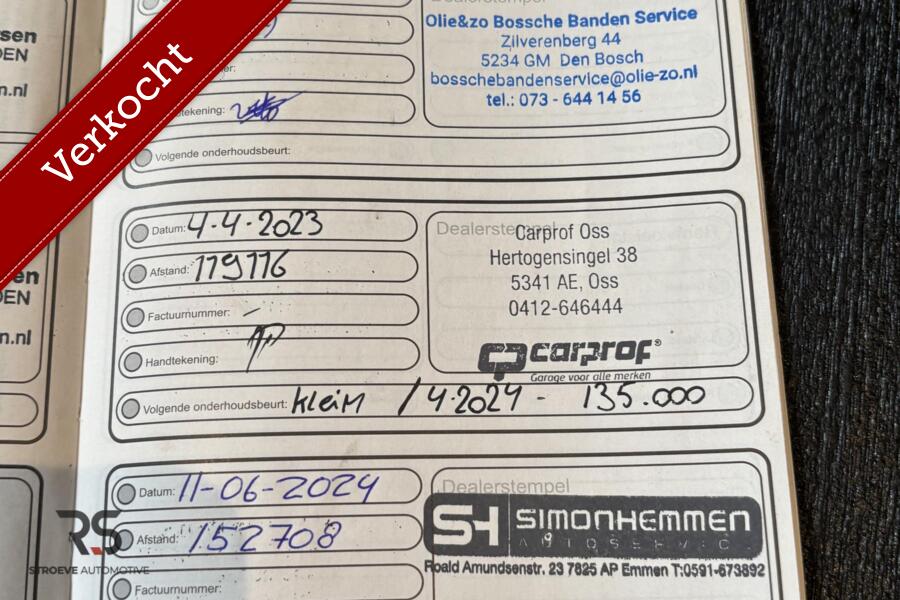 Verkocht
sen
DEN
n.nl
Dealerstempel
Olie&zo Bossche Banden Service
Zilverenberg 44
5234 GM Den Bosch
bosschebandenservice@olie-zo.nl
tel.: 073 - 644 14 56
tekening:
Volgende onderhoudsbeurt:
en
DEN
n.nl
Datum: 4-4-2023
Afstand: 119116
Factuurnummer: -
Handtekening:
Volgende onderhoudsbeurt: klein / 4-2024 - 135.000
Dealerstempel
Carprof Oss
Hertogensingel 38
5341 AE, Oss
0412-646444
carprof®
Garage voor alle merken
Datum: 11-06-2024
Afstand: 152708
Factuurnummer:
Dealerstempel
SH SIMONHEMMEN
AUTOSERVICE
Roald Amundsenstr. 23 7825 AP Emmen T:0591-673892
RS
STROEVE AUTOMOTIVE